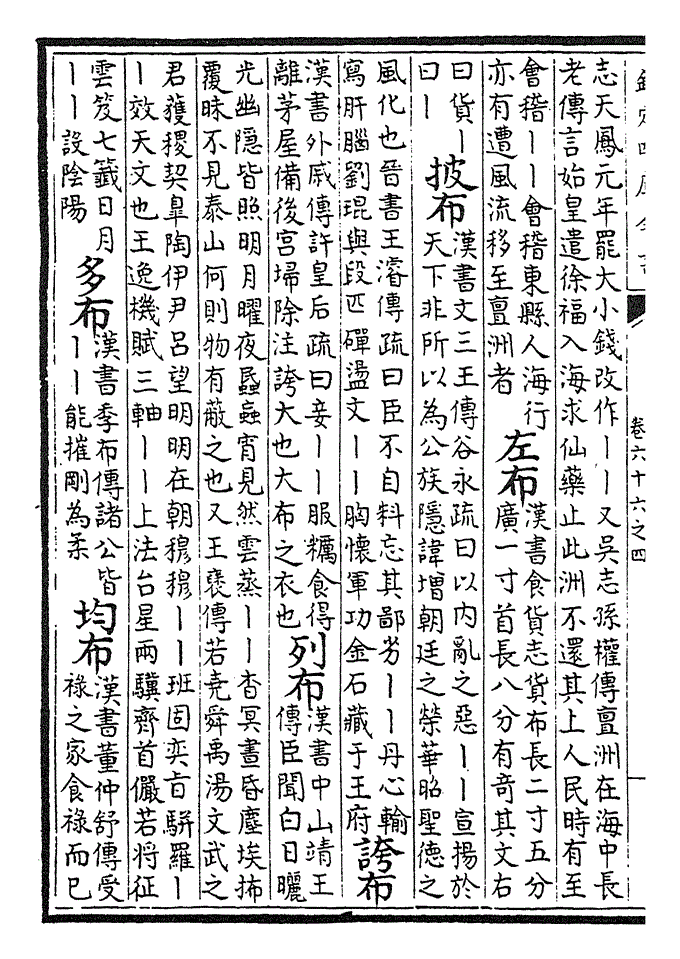 卷六十六之四
志天鳳元年罷大小錢改作丨丨又吳志孫權傳亶洲在海中長
老傳言始皇遣徐福入海求仙藥止此洲不還其上人民時有至
會稽丨丨會稽東縣人海行
亦有遭風流移至亶洲者
左布
漢書食貨志貨布長二寸五分
廣一寸首長八分有奇其文右
曰貨丨
曰丨
披布
漢書文三王傳谷永疏曰以内亂之惡丨丨宣揚於
天下非所以為公族隱諱增朝廷之榮華昭聖德之
風化也晉書王濬傳疏曰臣不自料忘其鄙劣丨丨丹心輸
寫肝腦劉琨與段匹磾盪文丨丨胸懷軍功金石藏于王府
誇布
漢書外戚傳許皇后疏曰妾丨丨服糲食得
離茅屋備後宮埽除注誇大也大布之衣也
列布
漢書中山靖王
傳臣聞白日曬
光幽隱皆照明月曜夜蟁蝱宵見然雲蒸丨丨杳冥晝昏塵埃抪
覆昧不見泰山何則物有蔽之也又王襃傳若堯舜禹湯文武之
君獲稷契臯陶伊尹呂望明明在朝穆穆丨丨班固奕旨駢羅丨
丨效天文也王逸機賦三軸丨丨上法台星兩驥齊首儼若將征
雲笈七籤日月
丨丨設陰陽
多布
漢書季布傳諸公皆
丨丨能摧剛為柔
均布
漢書董仲舒傳受
祿之家食祿而已